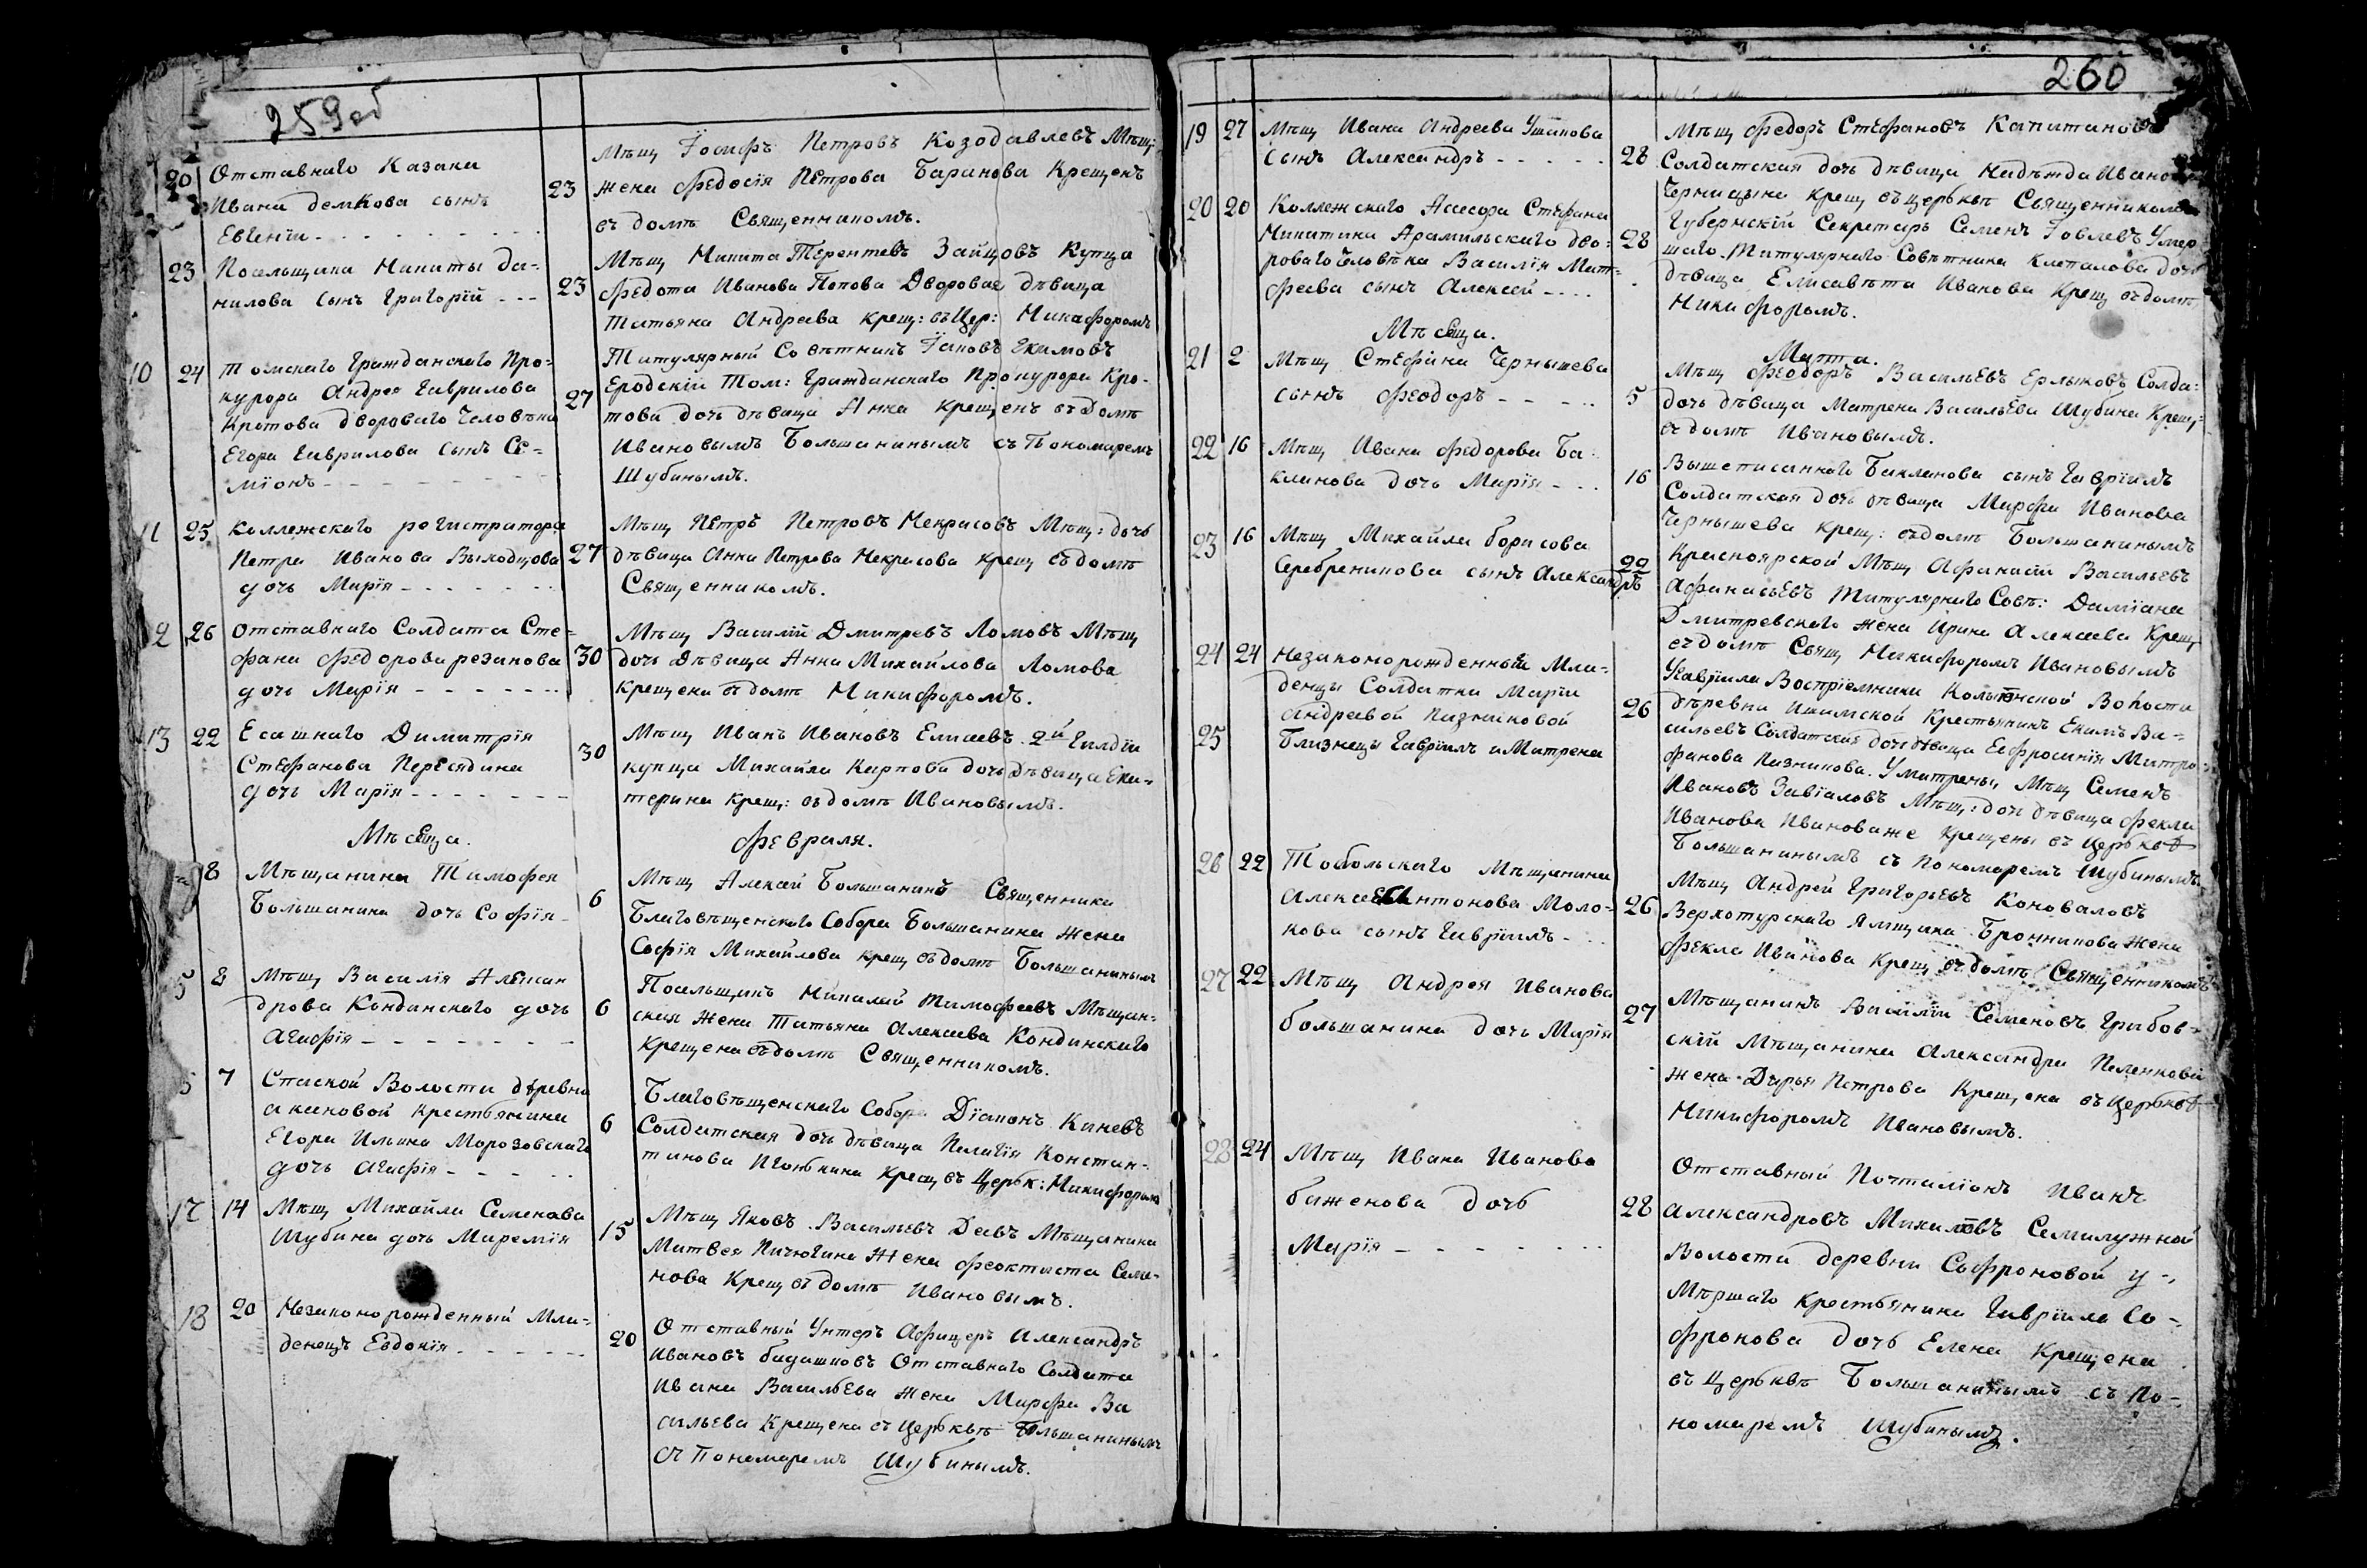 259об
20 Отставнаго Казака
Ивана демкова сынъ
Евгеній
23 Мѣщ Іосифъ Петровъ Козодавлевъ Мѣщ:
жена Федосія Петрова Баранова Крещенъ
въ домѣ Священникомъ.
23 Посельщика Никиты да-
нилова сынъ Григорій
23 Мѣщ Никита Терентевъ Зайцовъ Купца
Федота Иванова Попова Дворовае дѣвица
татьяна Андреева крещ: въ Цер: Никифоромъ
10 24 Томскаго Гражданскаго Про-
курора Андрея Гаврилова
Кротова дворового Человѣка
Егора Гаврилова сынъ Се-
міонъ
27 Титулярный Совѣтникъ Іаковъ Екимовъ
Еродскій Том: Гражданскаго Прокурора Кро-
това дочь дѣвица Анна Крещенъ въ Домѣ
Ивановымъ Большанинымъ съ Пономаремъ
Шубинымъ.
11 25 Коллежскаго регистратора
Петра Иванова Выходцова
дочь Марія
27 Мѣщ Петръ Петровъ Некрасовъ Мѣщ: дочь
дѣвица Анна Петрова Некрасова крещ въ домѣ
Священникомъ.
12 26 Отставнаго Солдата Сте-
фана Федорова резанова
дочь Марія
30 Мѣщ Василій Дмитревъ Ломовъ Мѣщ
дочь Дѣвица Анна Михайлова Ломова
крещена въ домѣ Никифоромъ.
13 22 Есашнаго Димитрія
Стефанова Пересядина
дочь Марія
30 Мѣщ Иванъ Ивановъ Елисеевъ 2й Гилдіи
купца Михайла Карпова дочь Дѣвица Ека-
терина крещ: въ домѣ Ивановымъ.
Мѣсеца. Февраля.
8 Мѣщанина Тимофея
Большанина дочь Софія
6 Мѣщ Алексей Большанинъ Священника
Благовѣщенскаго Собора Большанина жена
Софія Михайлова крещ въ домѣ Большанинымъ
5 8 Мѣщ Василія Алексан
дрова Кондинскаго дочь
Агафія
6 Посельщикъ Николай Тимофеевъ Мѣщан-
ская Жена Татьяна Алексеева Кондинскаго
крещена въ домѣ Священникомъ.
6 7 Спаской Волости деревни
акиновой крестьянина
Егора Ильина Морозовскаго
дочь Агафія
6 Благовѣщенскаго Собора Діаконъ Киневъ
Солдатская дочь дѣвица Пелагія Констан-
тинова крещ въ Церк: Никифоромъ
17 14 Мѣщ Михайла Семенова
Шубина дочь Маремія
15 Мѣщ Яковъ Васильевъ Девъ Мѣщанина
Матвея Пичюгина Жена Феоктиста Семе-
нова Крещ въ домѣ Ивановымъ.
18 20 Незаконорожденный Мла-
денецъ Евдокія
20 Отставный Унтеръ Афицеръ Александръ
Ивановъ бадашковъ Отставнаго Солдата
Ивана Васильева жена Марфа Ва
сильева Крещена въ церквѣ Большанинымъ
съ Пономаремъ Шубинымъ.
260
19 27 Мѣщ Ивана Андреева Ушакова
сынъ Александръ
28 Мѣщ Федоръ Стефановъ Капитановъ
Солдатская дочь дѣвица Надежда Иванова
Черницына крещ въ церьквѣ Священникомъ
20 20 Коллежскаго Асесора Стефана
Никитина Арамильскаго дво-
роваго Человѣка Василія Мат-
феева сынъ Алексей
28 Губернскій Секретарь Семенъ Іовлевъ Умер
шаго Титулярнаго Совѣтника Клепалова дочь
дѣвица Елисавѣта Иванова Крещ въ домѣ
Никифоромъ.
Мѣсеца. Марта.
21 2 Мѣщ Стефана Чернышева
сынъ Феодоръ
5 Мѣщ Феодоръ Васильевъ Ерлыковъ Солда:
дочь дѣвица Матрена Васильева Шубина Крещ:
въ домѣ Ивановымъ.
22 16 Мѣщ Ивана Федорова Ба-
кланова дочь Марія
16 Вышеписаннаго Бакланова сынъ Гавріилъ
Солдатская дочь дѣвица Марфа Иванова
Чернышева крещ: въ домѣ Большанинымъ
23 16 Мѣщ Михайла борисова
Серебреникова сынъ Александръ
22 Красноярской Мѣщ Афанасій Васильевъ
Афанасьевъ Титулярнаго Совѣ: Даміана
Дмитревскаго жена Ирина Алексеева Крещ
въ домѣ Свящ Никифоромъ Ивановымъ
24 24 Незаконорожденныи Мла-
денцы Солдатки Маріи
Андреевой Пазниковой
25 Близнецы Гавріилъ и Матрена
26 У Гавріила Воспріемники Волости
деревни Ишимской Крестьянинъ Екимъ Ва-
сильевъ Солдатская дочь дѣвица Ефросинія Митро-
фанова Пазникова. У матрены, Мѣщ Семенъ
Ивановъ Завіаловъ Мѣщ: дочь дѣвица Фекла
Иванова Иванова же крещены въ церьквѣ
Большанинымъ съ Пономаремъ Шубинымъ.
26 22 Тобольскаго Мѣщанина
Алексея Антонова Моло-
кова сынъ Гавріилъ
26 Мѣщ Андрей Григорьевъ Коноваловъ
Верхотурскаго Ямщика Бронникова Жена
Фекла Иванова Крещ въ домѣ Священникомъ
27 22 Мѣщ Андрея Иванова
большанина дочь Марія
27 Мѣщанинъ Василій Семеновъ Грибов-
скій Мѣщанина Александра Пеленкова
жена Дарья Петрова Крещена въ Церьквѣ
Никифоромъ Ивановымъ.
28 24 Мѣщ Ивана Иванова
баженова дочь
Марія
28 Отставный Почталіонъ Иванъ
Александровъ Михаловъ Семилужной
Волости деревни Софроновой у-
мѣршаго Крестьянина Гавріила Со-
фронова дочь Елена Крещена
въ Церьквѣ Большанинымъ съ По-
номаремъ Шубинымъ.